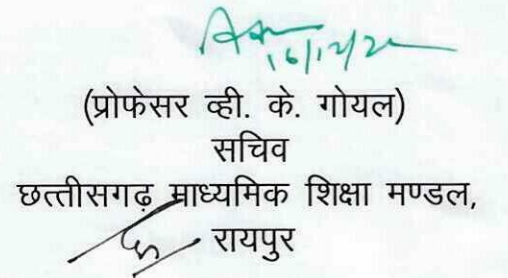 16/12/2
(प्रोफेसर व्ही. के. गोयल)
सचिव
छत्तीसगढ़ माध्यमिक शिक्षा मण्डल,
रायपुर